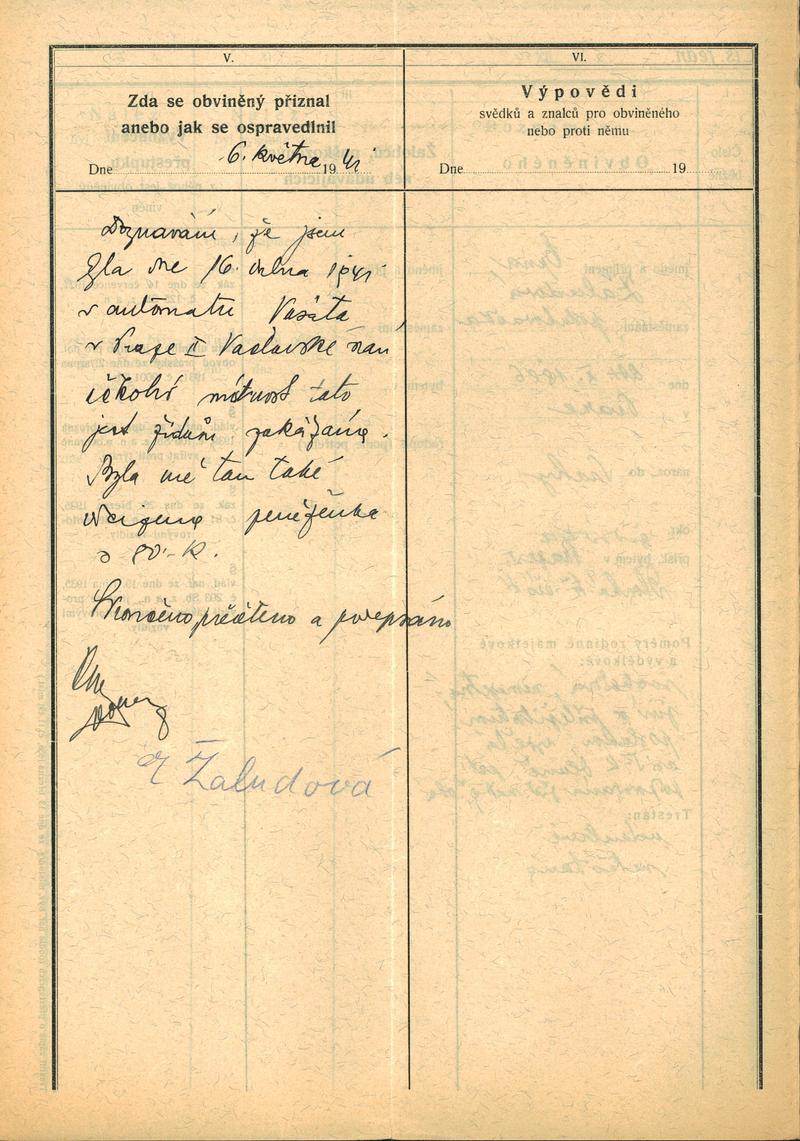 V.
Zda se obviněný přiznal
anebo jak se ospravedlnil
Dne 6. května 1941
Doznávám, že jsem
byla dne 16. dubna 1941
v automatu Vašata
v Praze II Václavské nám
ačkoliv místnost tato
jest židům zakázána.
Byla mě tam také
peněženka
s 80.- K.
Skončeno přečteno a podepsáno
Žaludová
VI.
Výpovědi
svědků a znalců pro obviněného
nebo proti němu
Dne 19